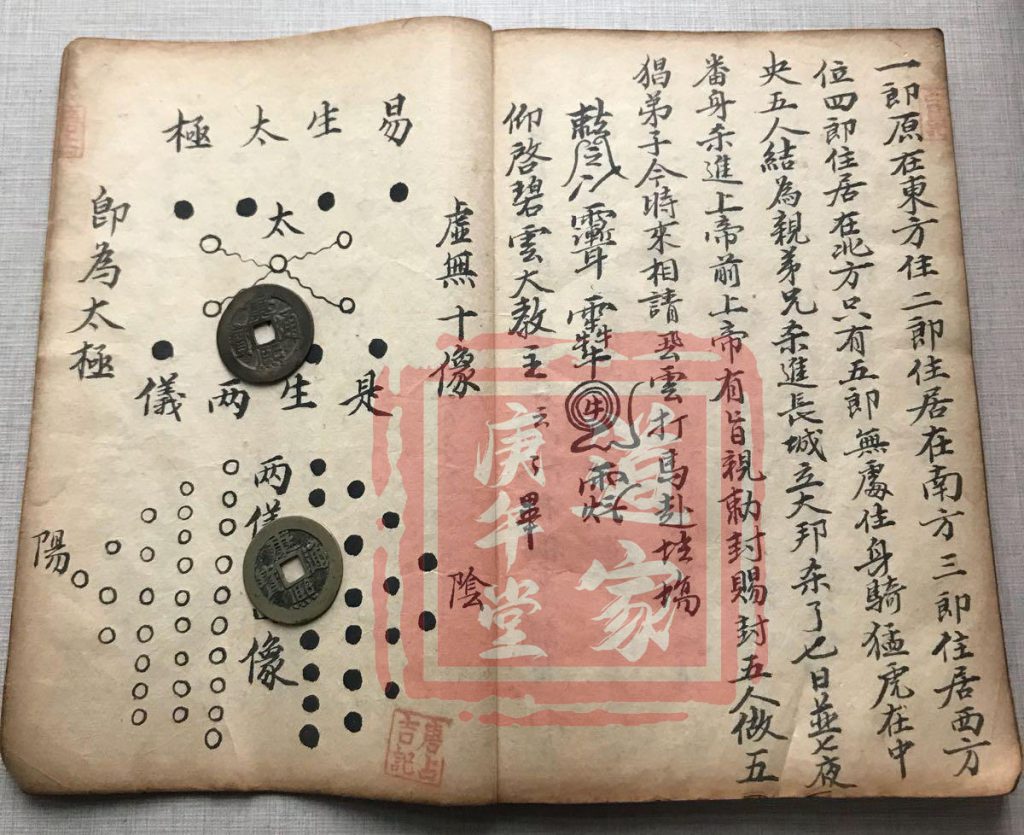 一郎原在東方住二郎住居在南方三郎住居西方
位四郎住居在北方只有五郎無處住身騎猛虎在中
央五人結為親弟兄杀進長城立大邦杀了七日並七夜
番身杀進上帝前上帝有旨親勅封賜封五人做五
猖弟子今時來相請雲打馬赴坛塲
仰啓碧雲大教主云々畢
易生太極
虛無十像
太
即為太極
是生两儀
两儀像
陰
陽
道家
堂
吉記